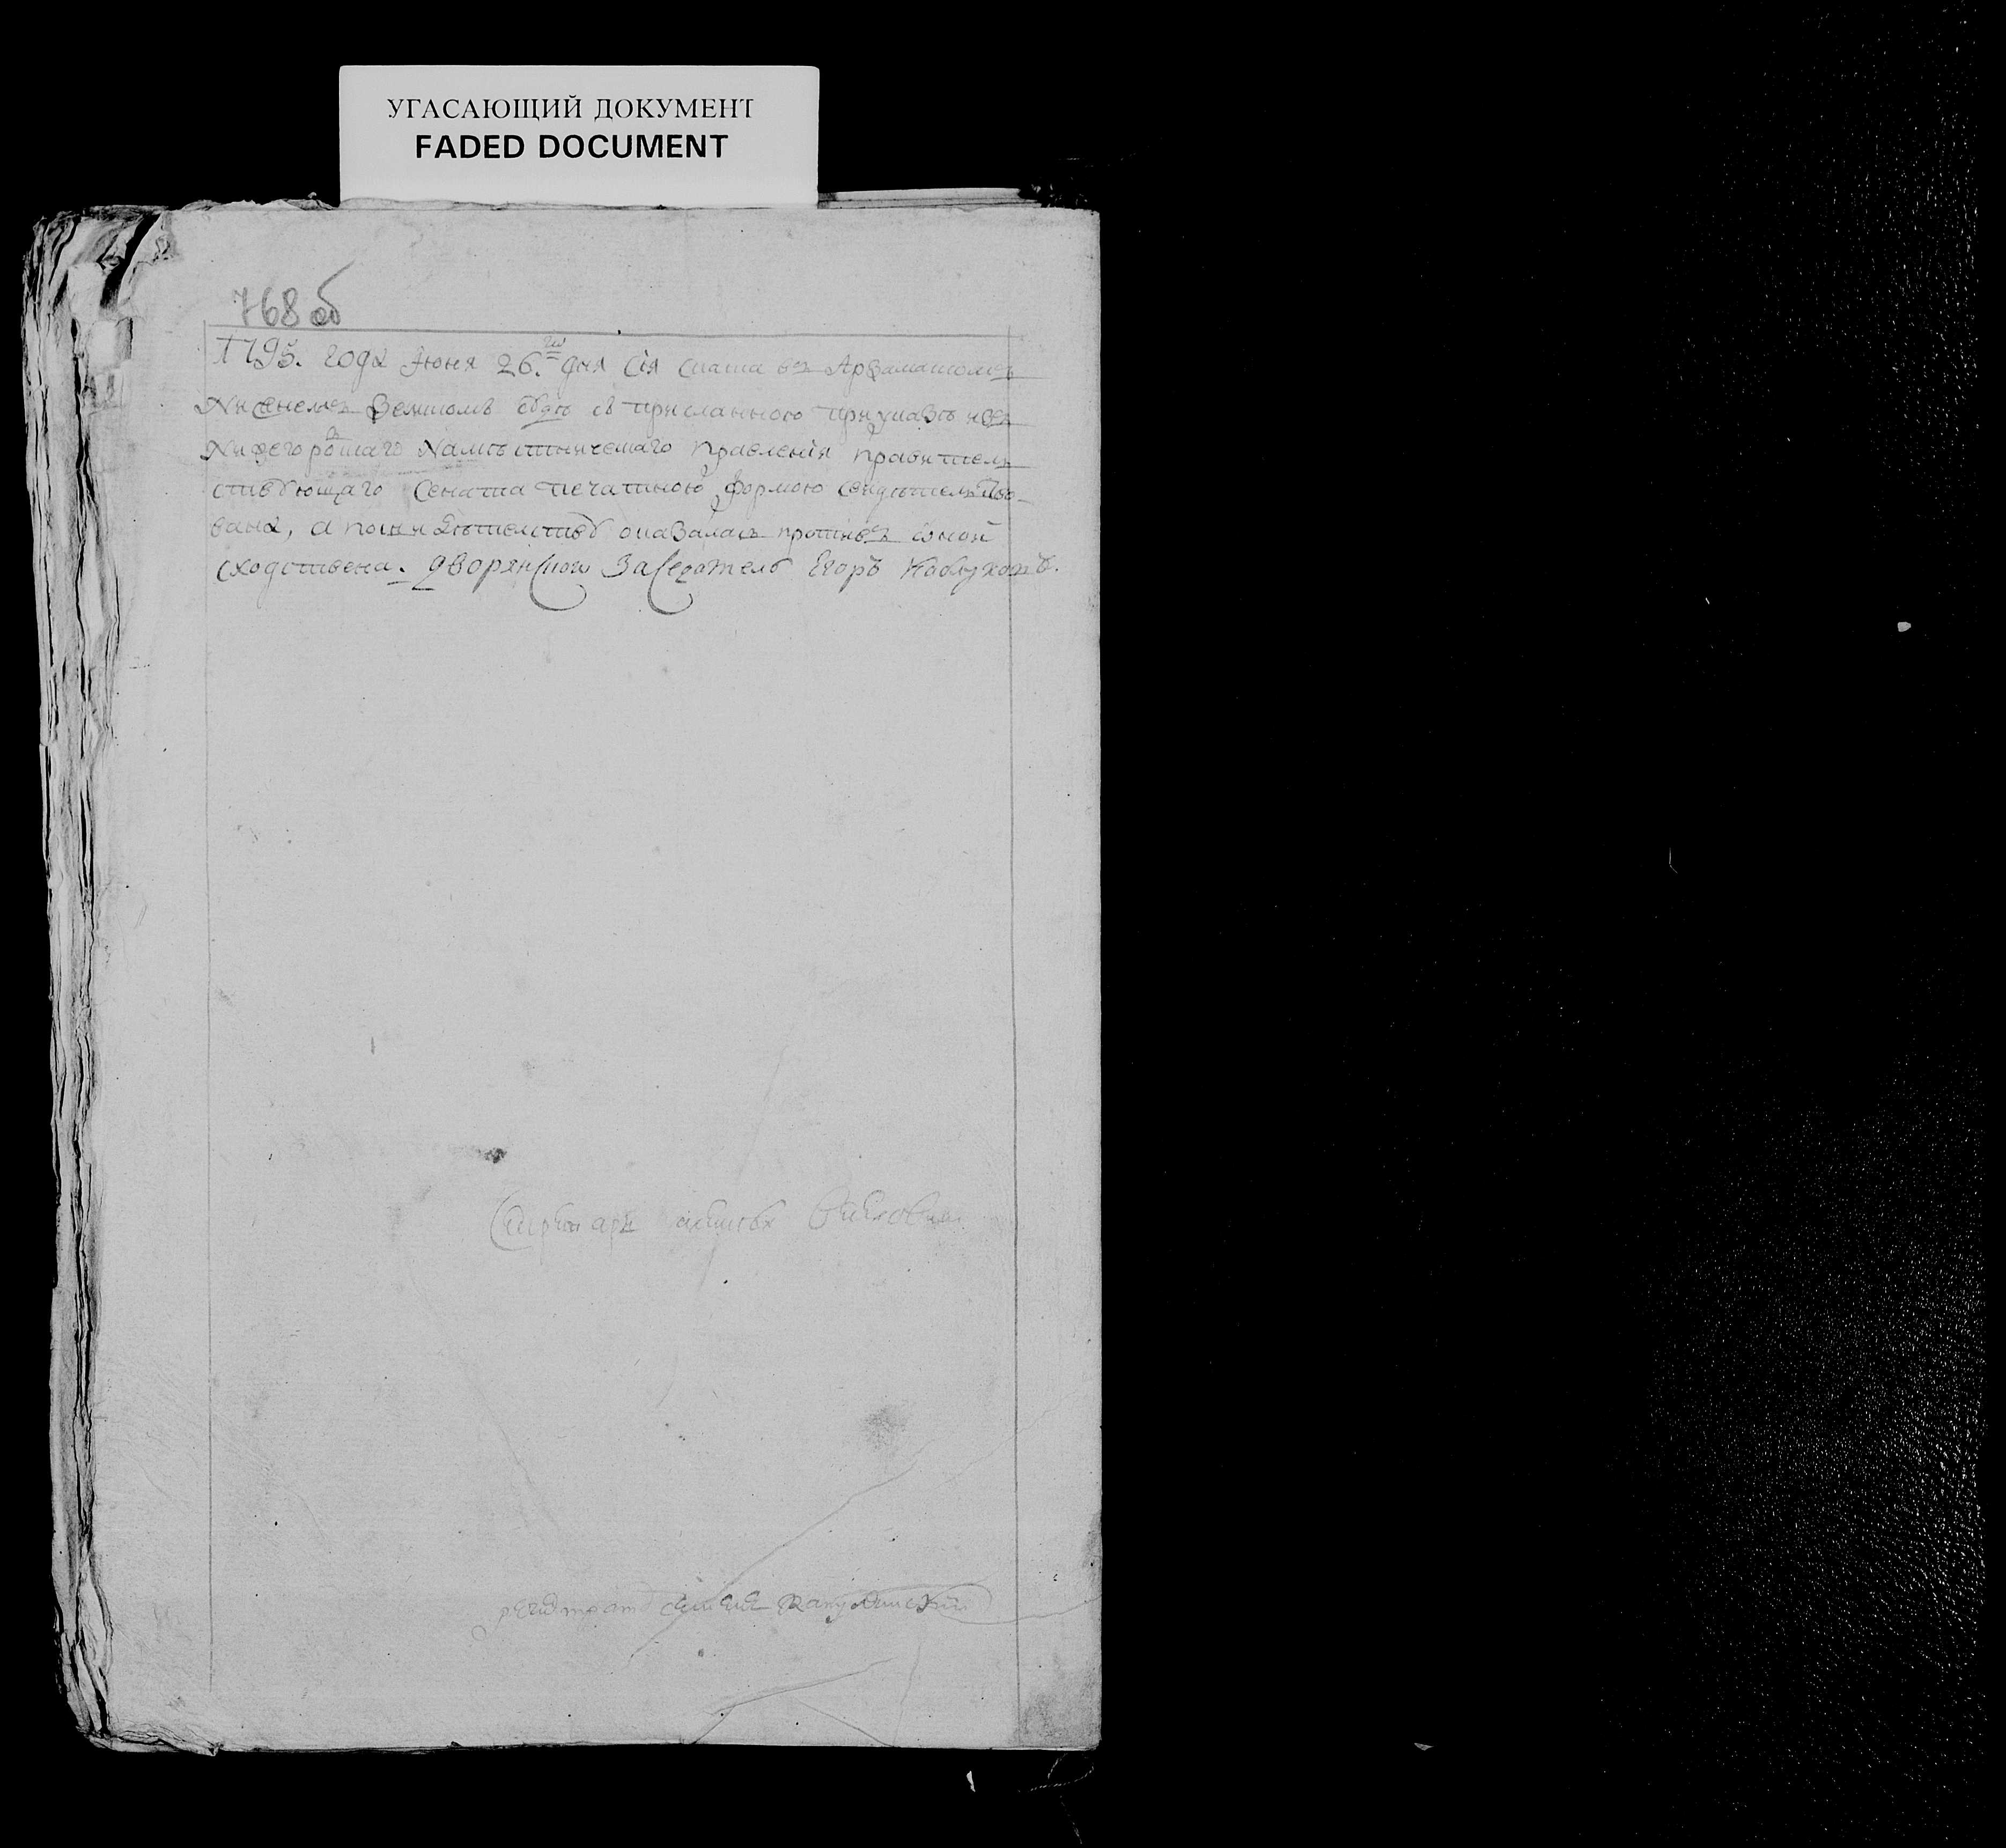 УГАСАЮЩИЙ ДОКУМЕНТ
FADED DOCUMENT
768 об
1795. года Июня 26.го дня Сія скаска въ Арзамаскомъ
Нижнемъ Земскомъ суде съ присланною при указѣ изъ
Нижегороцкаго Намѣстническаго Правленія правитель
ствующаго Сената печатною формою свидѣтельство
вана, а по свидѣтелству оказалась противъ оной
сходственна. Дворянской Заседатель Егоръ
Секретарь
регистратор